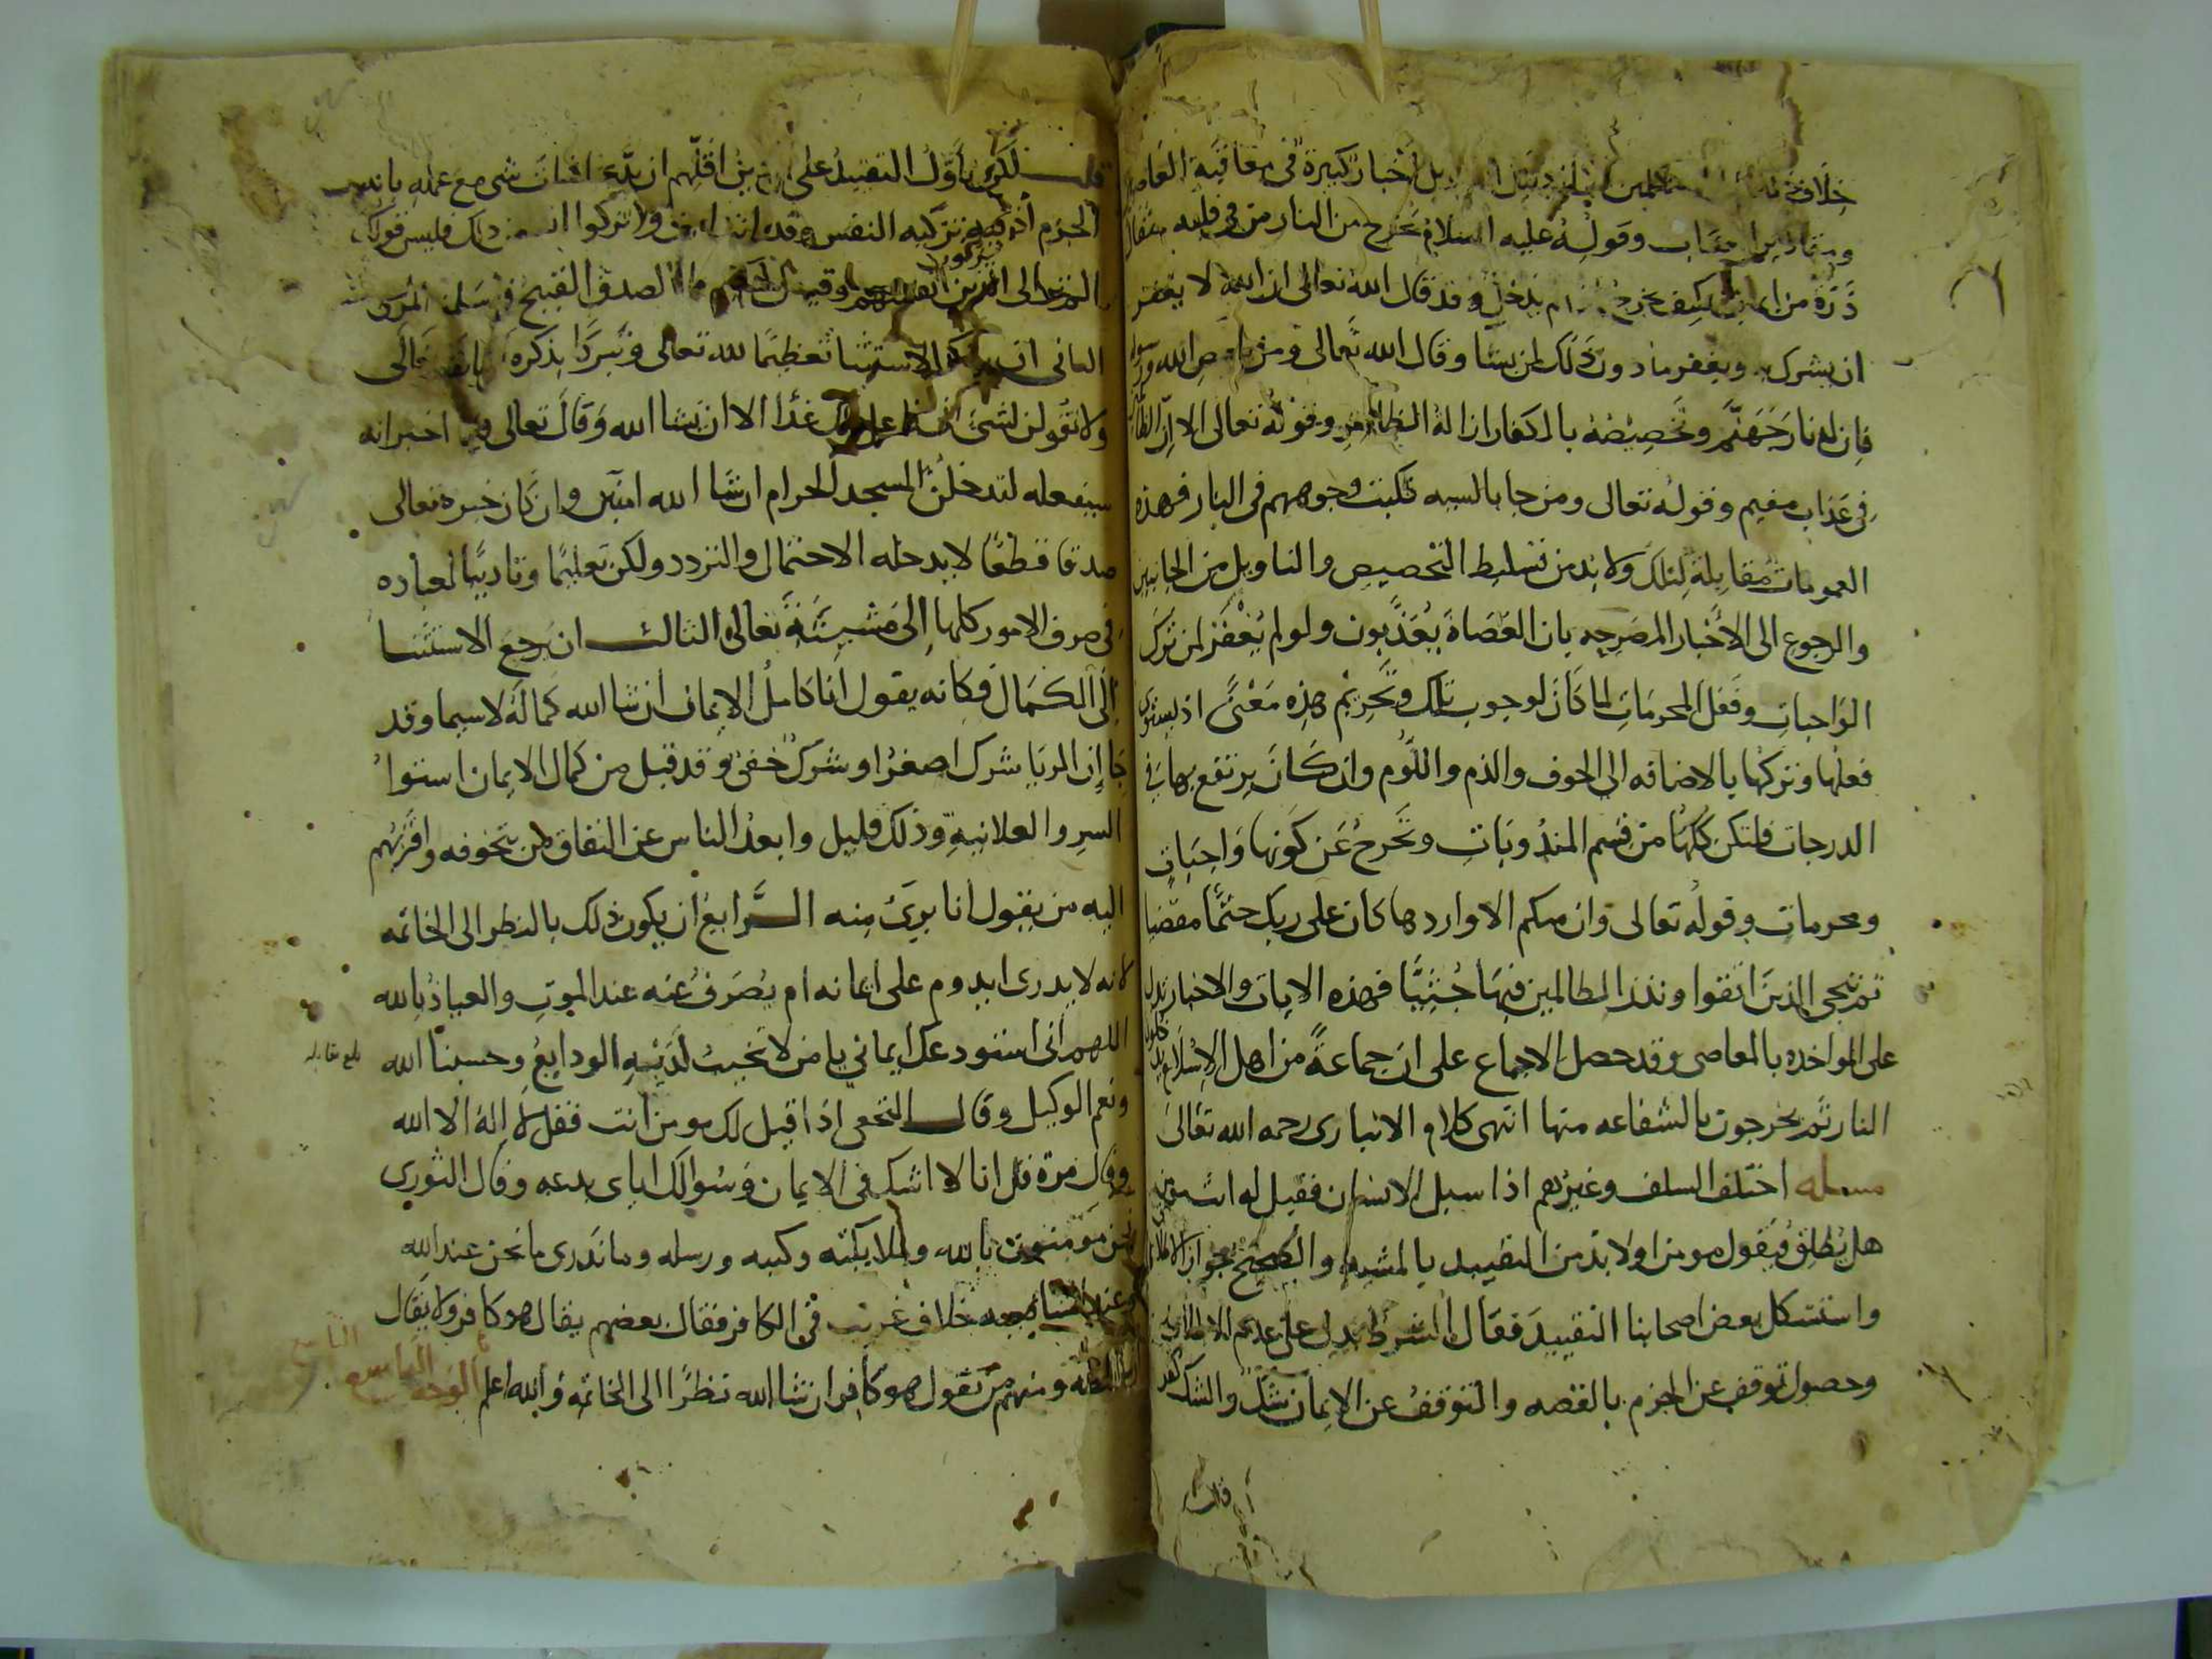 خلاف اخبار كثيرة في معاقبة العاصي
ومقادير العقاب وقوله عليه السلام يخرج من النار من في قلبه مثقال
ذرة من ايمان فكيف يخرج من لم يدخل وقد قال الله تعالى ان الله لا يغفر
ان يشرك به ويغفر ما دون ذلك لمن يشا وقال الله تعالى ومن يعص الله ورسوله
فان له نار جهنم وتخصيصه بالكفار ازالة الظاهر وقوله تعالى الا ان الظالمين
في عذاب مقيم وقوله تعالى ومن جا بالسيه فكبت وجوههم في النار فهذه
العمومات مقابلة لتلك ولا بد من تسليط التخصيص والتاويل من الجانبين
والرجوع الى الاخبار المصرحه بان العصاة يعذبون ولو لم يغفر لمن ترك
الواجبات وفعل المحرمات لما كان لوجوب تلك وتحريم هذه معنى اذ يستوى
فعلها وتركها بالاضافه الى الخوف والذم واللوم وان كان يرتفع بها في
الدرجات فلتكن كلها من قسم المندوبات وتخرج عن كونها واجبات
ومحرمات وقوله تعالى وان منكم الا واردها كان على ربك حتما مقضيا
ثم ننجي الذين اتقوا ونذر الظالمين فيها جثيا فهذه الايات والاخبار تدل
على المواخذه بالمعاصي وقد حصل الاجماع على ان جماعة من اهل الاسلام يدخلون
النار ثم يخرجون بالشفاعه منها انتهى كلام الانباري رحمه الله تعالى
مسله اختلف السلف وغيرهم اذا سيل الانسان فقيل له انت مومن
هل يطلق فيقول مومن او لا بد من التقييد بالمشيه والصحيح جواز الاطلاق
واستشكل بعض اصحابنا التقييد فقال الشرط يدل على عدم الاطلاق
وحصول توقف عن الجزم بالقضه والتوقف عن الايمان شك والشك كفر
قلت
قلت لكن تاول التقييد على اقلهم ان اثبات شي مع عمله
الجزم تزكيه النفس وقد ذلك فليس قولك
الم تر الى الذين يزكون انفسهم وقيل لحكيم ما الصدق القبيح
الثاني ان الاستثنا تعظيما لله تعالى وتبركا بذكره تعالى
ولا تقولن لشئ اني فاعل ذلك غدا الا ان يشا الله وقال تعالى اخبر انه
سيفعله لتدخلن المسجد الحرام ان شا الله امنين وان كان خبره تعالى
صدقا قطعا لا يدخله الاحتمال والتردد ولكن تعليما وتاديبا لعباده
في صرف الامور كلها الى مشيئته تعالى الثالث ان يرجع الاستثنا
الى الكمال فكانه يقول انا كامل الايمان ان شا الله كماله لا سيما وقد
جا ان الريا شرك اصغر او شرك خفي وقد قيل من كمال الايمان استوا
السر والعلانية وذلك قليل وابعد الناس عن النفاق من يتخوفه واقربهم
اليه من يقول انا برئ منه الرابع ان يكون ذلك بالنظر الى الخاتمه
لانه لا يدرى ايدوم على ايمانه ام يصرف عنه عند الموت والعياذ بالله
اللهم اني استودعك ايماني يا من لا تخيب لديه الودايع وحسبنا الله
بلغ مقابله
ونعم الوكيل وقال النخعي اذا قيل لك مومن انت فقل لا اله الا الله
وقال مرة قل انا لا اشك في الايمان وسوالك اياى بدعه وقال الثوري
نحن مومنون بالله وملايكته وكتبه ورسله وما ندرى ما نحن عند الله
خلاف غريب في الكافر فقال بعضهم يقال هو كافر ولا يقال
ان شا الله ومنهم من يقول هو كافر ان شا الله نظرا الى الخاتمه والله اعلم الوجه التاسع
التاسع